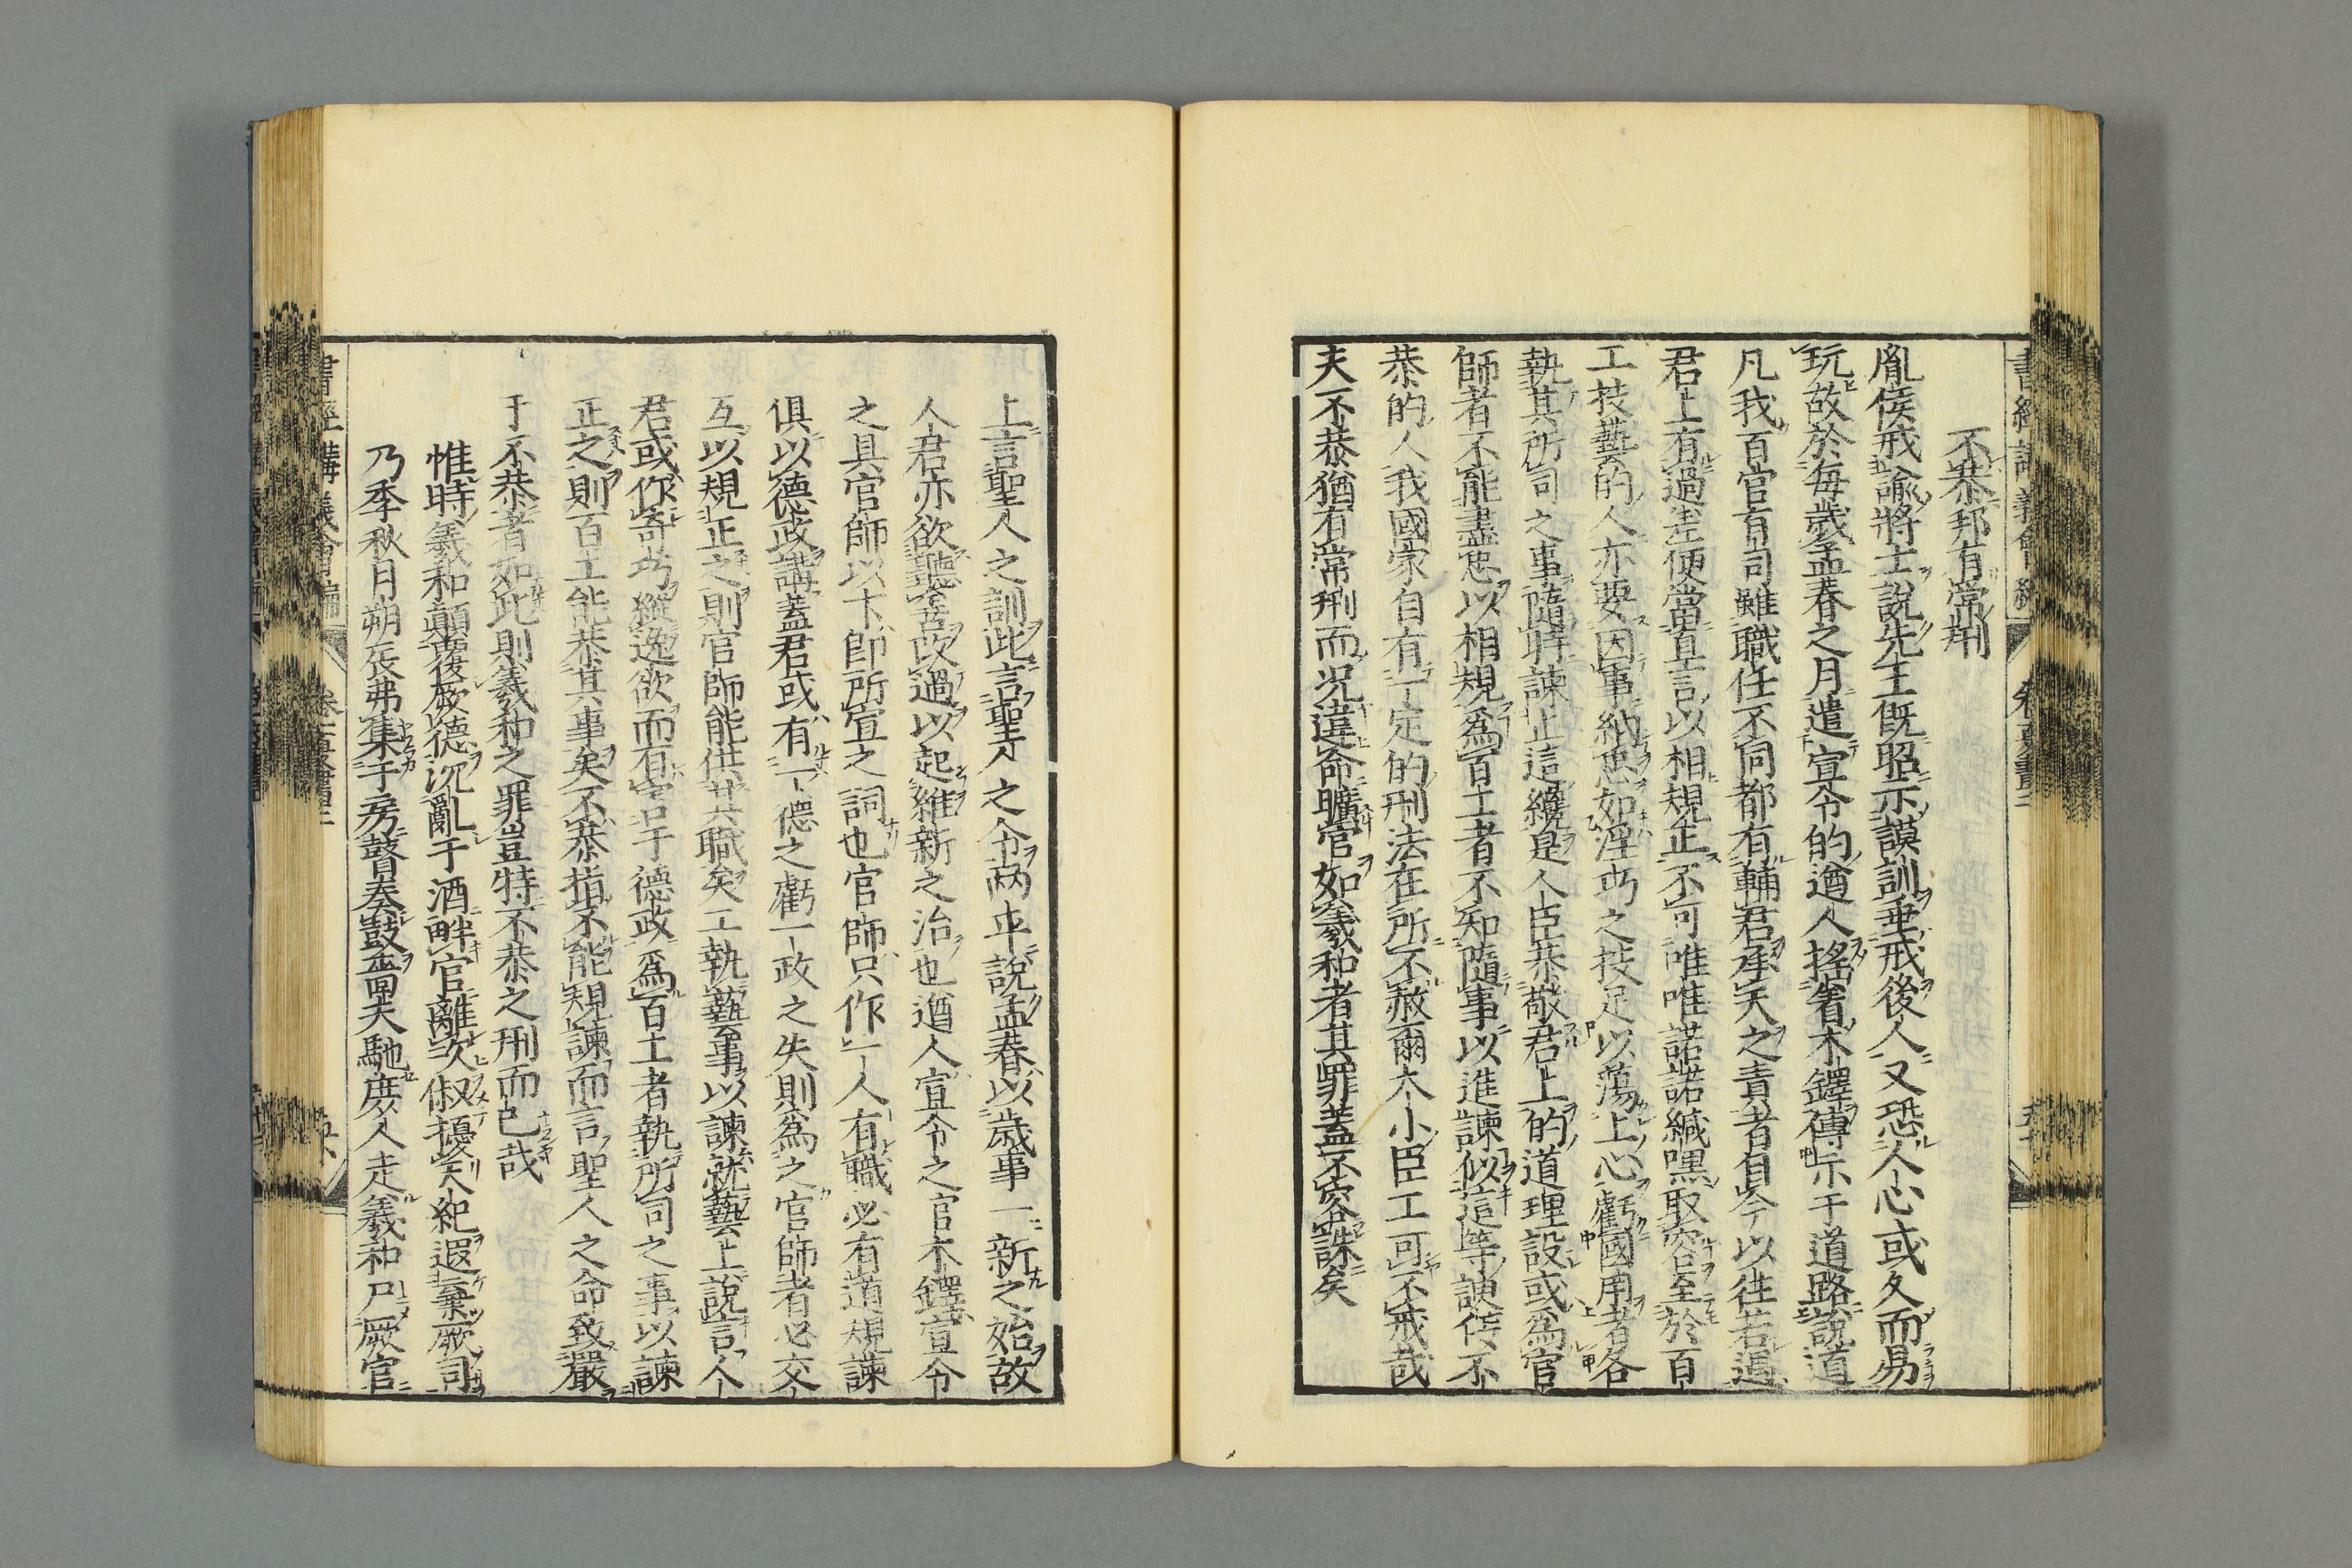 不恭邦有常刑
胤侯戒諭將士說先王旣昭示謨訓垂戒後人又恐人心或久而易
玩故於每歲孟春之月遣宣令的遒人搖着木鐸傳示于道路說道
凡我百官有司雖職任不同都有輔君承天之責者自今以往若遇
君上有過差便當直言以相規正不可唯唯諾諾緘嘿取容至於百
工技藝的人亦要因事納忠如淫巧之技足以蕩上心虧國用者各
執其所司之事隨時諫止這纔是人臣恭敬君上的道理設或爲官
師者不能盡忠以相規爲百工者不知隨事以進諫似這等諛侫不
恭的人我國家自有一定的刑法在所不赦爾大小臣工可不戒哉
夫不恭猶有常刑而况違命曠官如羲和者其罪蓋不容誅矣
上言聖人之訓此言聖人之令两平說孟春以歲事一新之始故
人君亦欲聽善改過以起維新之治也遒人宣令之官木鐸宣令
之具官師以下卽所宣之詞也官師只作一人有職必有道規諫
俱以德政講蓋君或有一德之虧一政之失則爲之官師者必交
互以規正之則官師能供其職矣工執藝事以諫就藝上說言人
君或作奇巧縱逸欲而有害于德政爲百工者執所司之事以諫
正之則百工能恭其事矣不恭指不能規諫而言聖人之命致嚴
于不恭者如此則羲和之罪豈特不恭之刑而已哉
惟時羲和顛覆厥德沉亂于酒畔官離次俶擾天紀遐棄厥司
乃季秋月朔辰弗集于房瞽奏鼓嗇夫馳庶人走羲和尸厥官